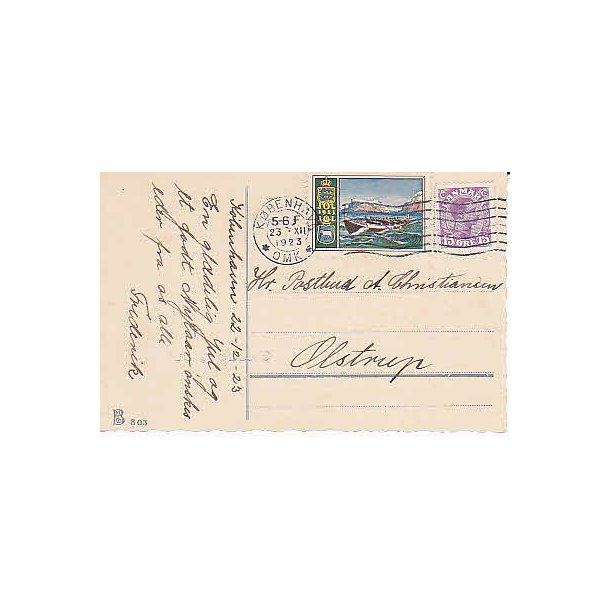 København 22-12-23
En glædelig Jul og
et godt Nytaar ønskes
eder fra os alle
Frederik
KØBENHAVN
5-6 F
23 XII
1923
OMK.
JUL
DANMARK
15 ØRE 15
Hr. Postbud A. Christiansen
Olstrup
B 503